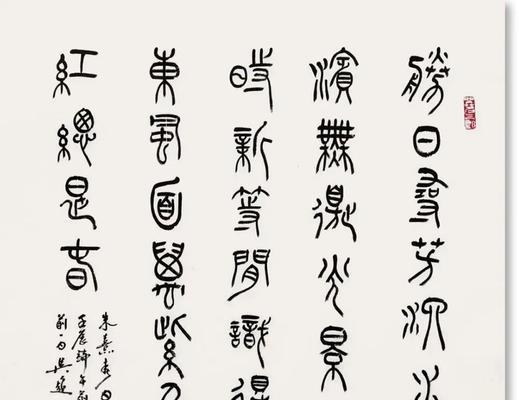 勝日尋芳泗水
濱無邊光景
時新等閒識得
東風面萬紫千
紅總是春
朱熹春日
壬辰端午